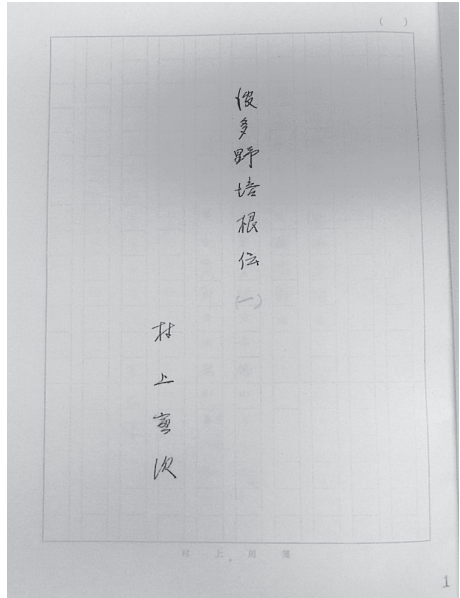 ( )
波多野培根伝
(一)
村上寅次
村上用箋
1